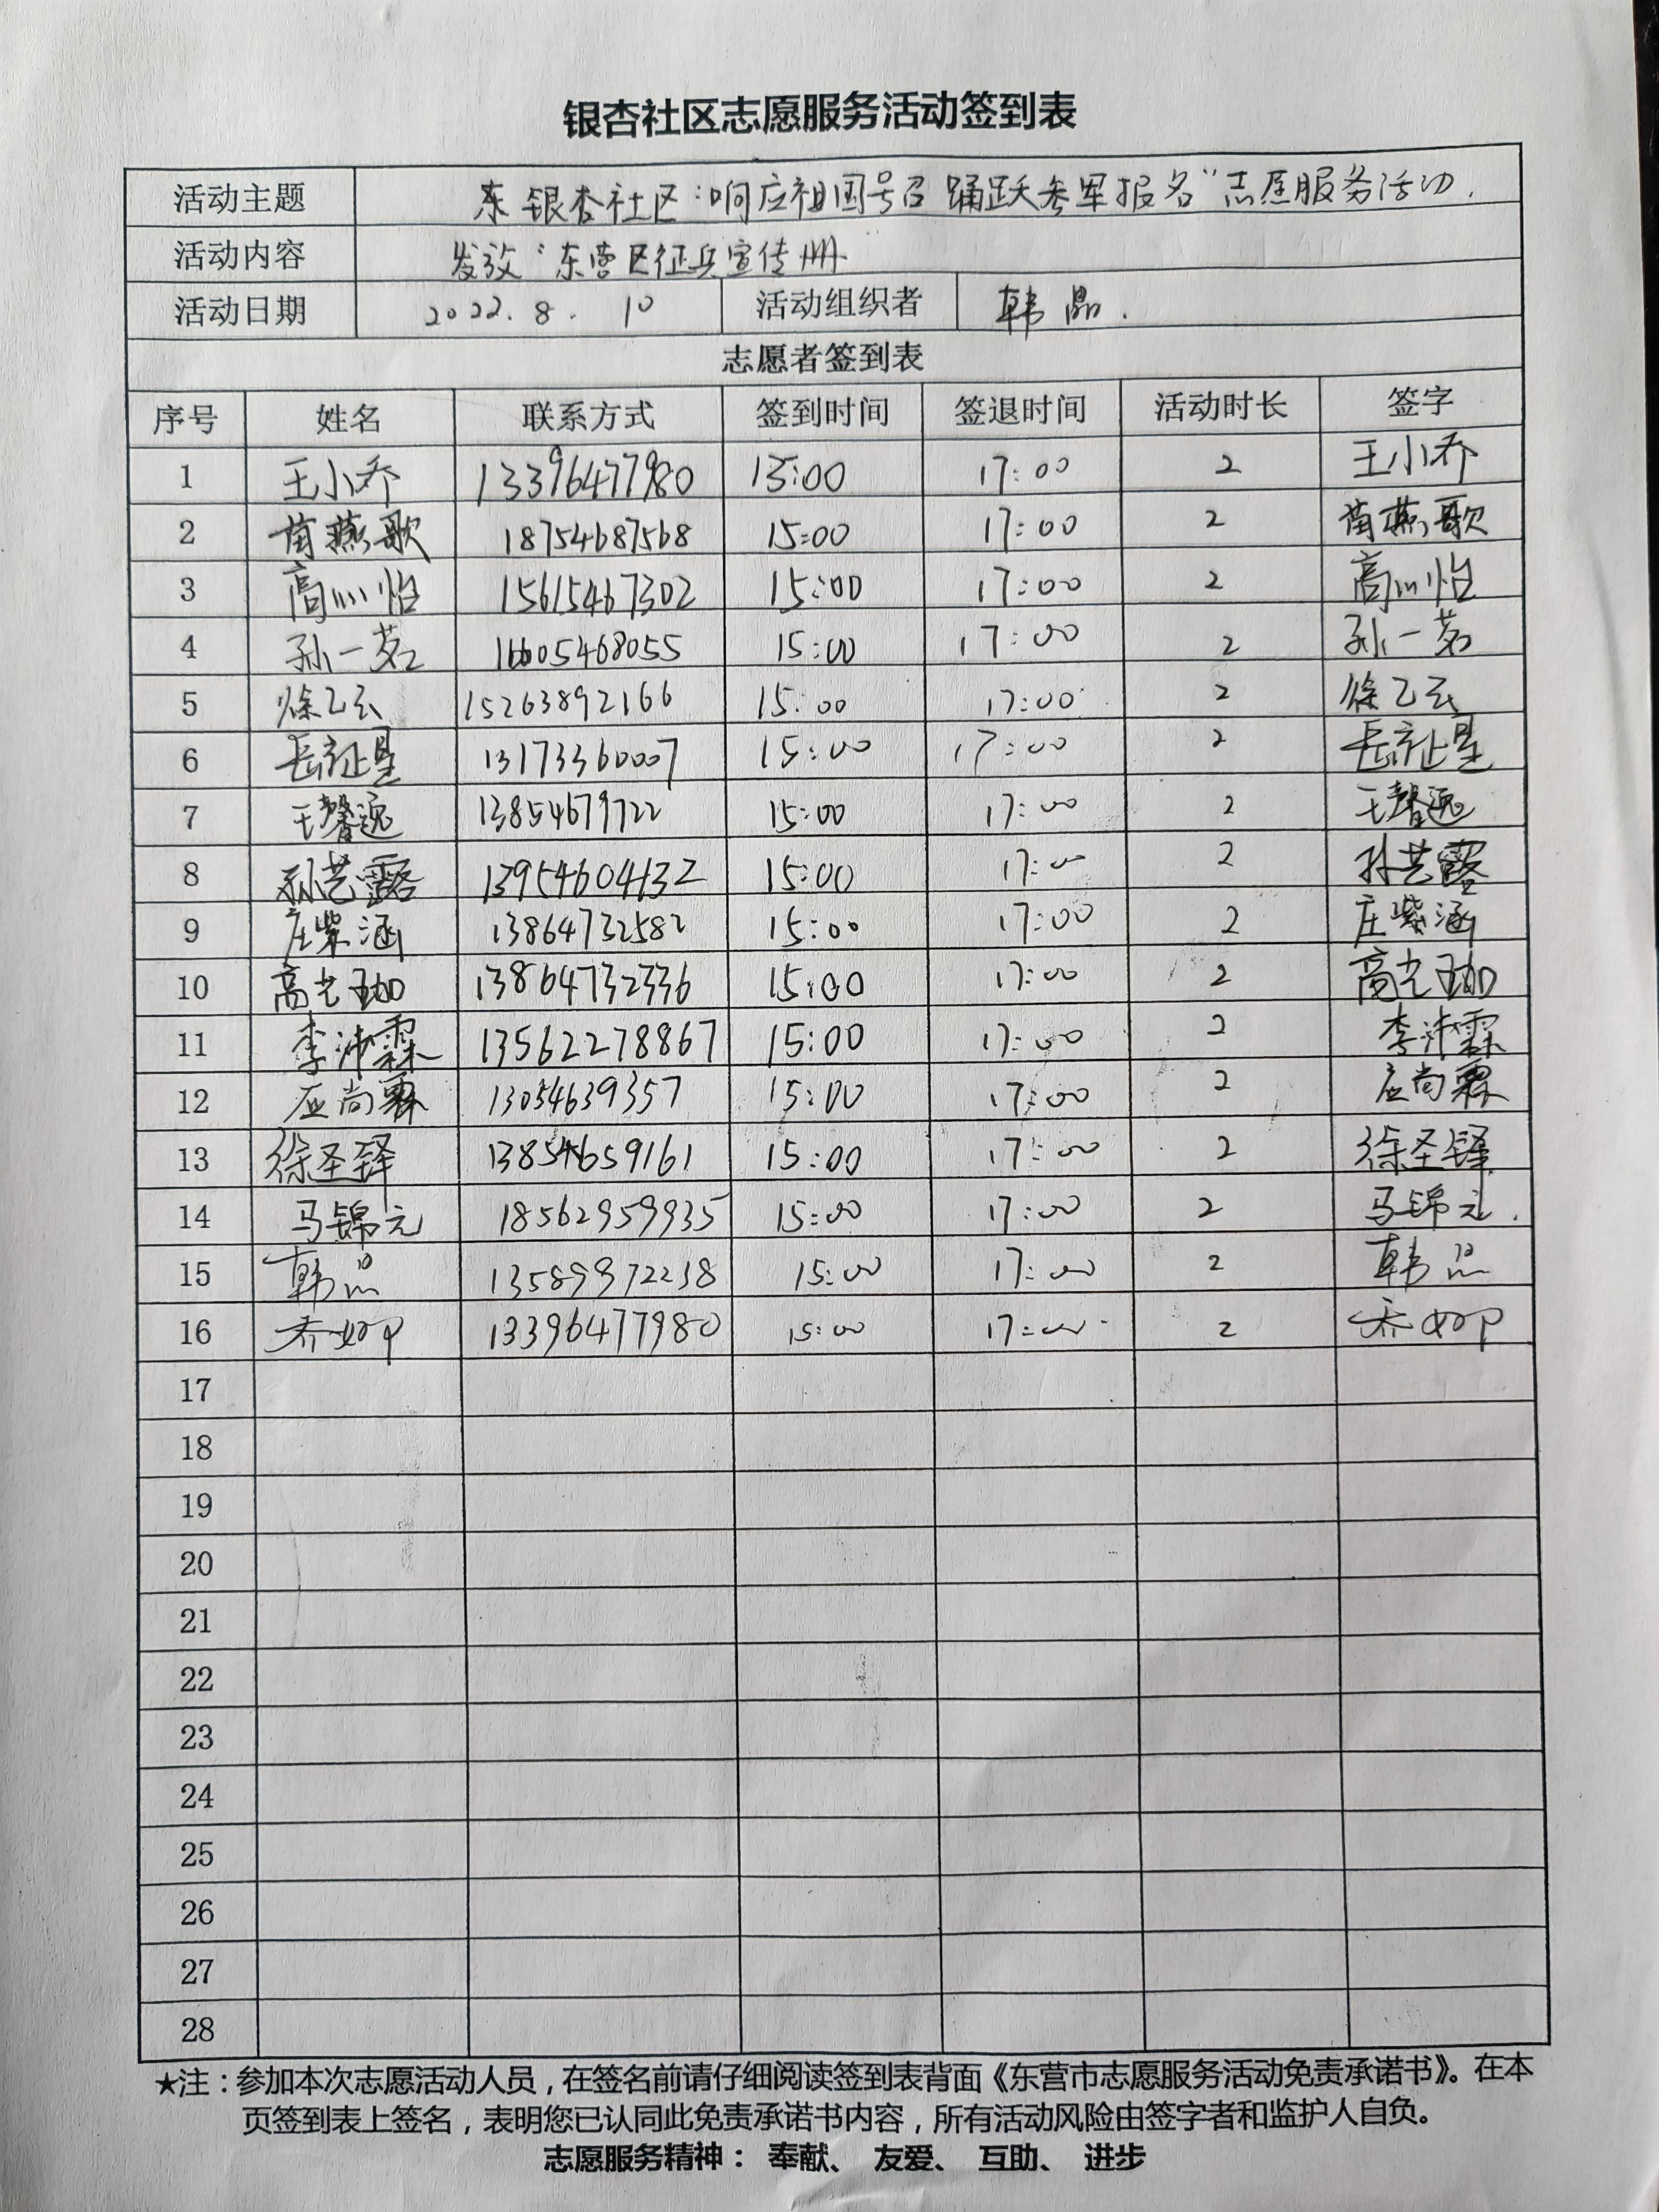 银杏社区志愿服务活动签到表
活动主题 东银杏社区:响应祖国号召 踊跃参军报名"志愿服务活动.
活动内容 发放"东营区征兵宣传册
活动日期 2022.8.10 活动组织者 韩晶.
志愿者签到表
序号 姓名 联系方式 签到时间 签退时间 活动时长 签字
1 王小乔 13396477980 15:00 17:00 2 王小乔
2 苗燕歌 18754687568 15:00 17:00 2 苗燕歌
3 高心怡 15615467302 15:00 17:00 2 高心怡
4 孙一茗 16605468055 15:00 17:00 2 孙一茗
5 徐乙云 15263892166 15:00 17:00 2 徐乙云
6 13173360007 15:00 17:00 2
7 王馨逸 13854679722 15:00 17:00 2 王馨逸
8 孙艺露 13954604132 15:00 17:00 2 孙艺露
9 庄紫涵 13864732582 15:00 17:00 2 庄紫涵
10 高光珈 13864732336 15:00 17:00 2 高光珈
11 李沛霖 13562278867 15:00 17:00 2 李沛霖
12 应尚霖 13054639357 15:00 17:00 2 应尚霖
13 徐圣铎 13854659161 15:00 17:00 2 徐圣铎
14 马锦元 18562959935 15:00 17:00 2 马锦元.
15 韩晶 13589972238 15:00 17:00 2 韩晶
16 乔 13396477980 15:00 17:00 2 乔
17
18
19
20
21
22
23
24
25
26
27
28
★注：参加本次志愿活动人员，在签名前请仔细阅读签到表背面《东营市志愿服务活动免责承诺书》。在本
页签到表上签名，表明您已认同此免责承诺书内容，所有活动风险由签字者和监护人自负。
志愿服务精神： 奉献、 友爱、 互助、 进步